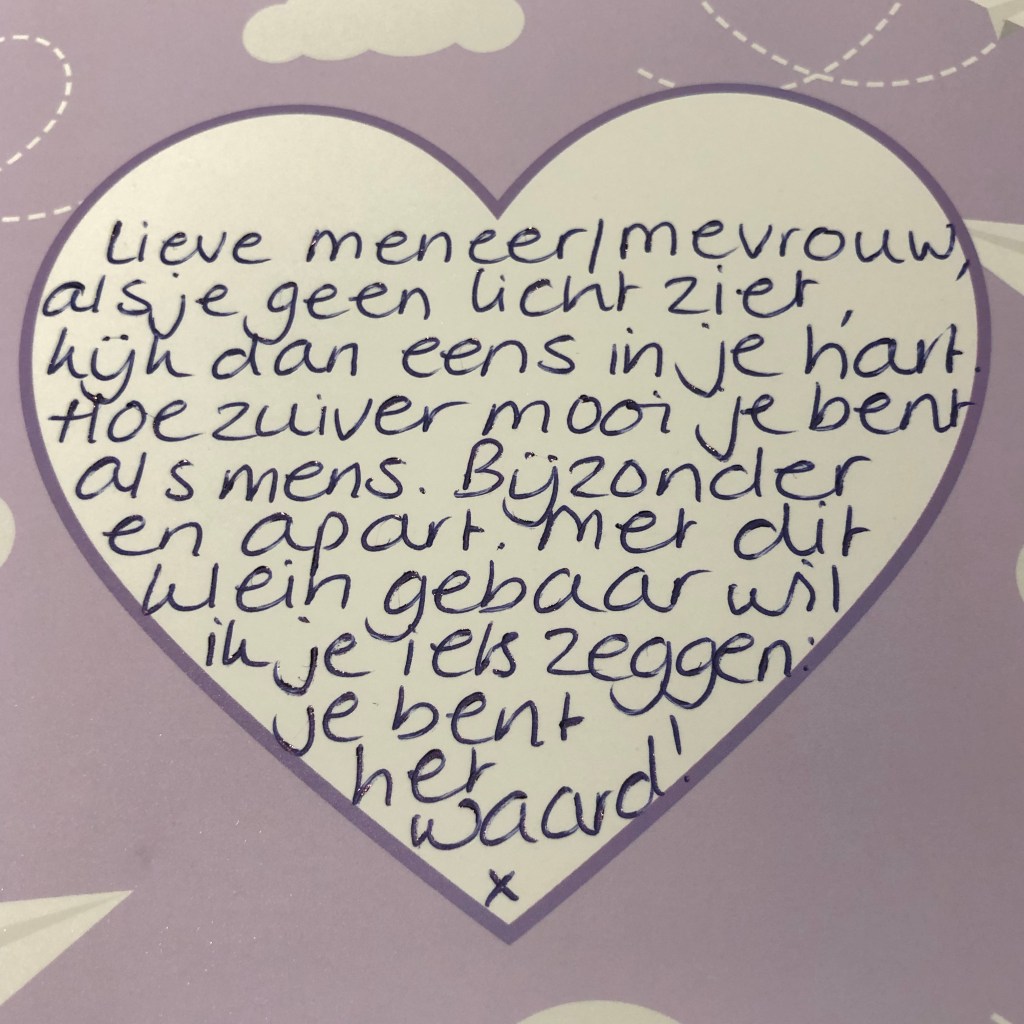 Lieve meneer/mevrouw,
als je geen licht ziet,
kijk dan eens in je hart.
Hoe zuiver mooi je bent
als mens. Bijzonder
en apart. Met dit
klein gebaar wil
ik je iets zeggen:
je bent
het
waard!
x